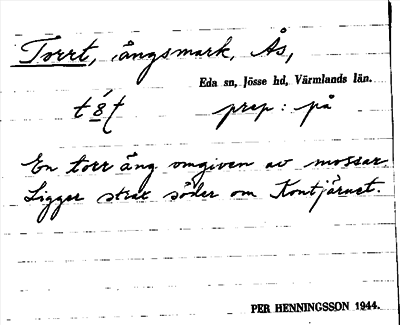 Torrt, ängsmark, Ås,
Eda sn, Jösse hd, Värmlands län.
prep: på
En torr äng omgiven av mossar.
Ligger strax söder om Kontjärnet.
PER HENNINGSSON 1944.